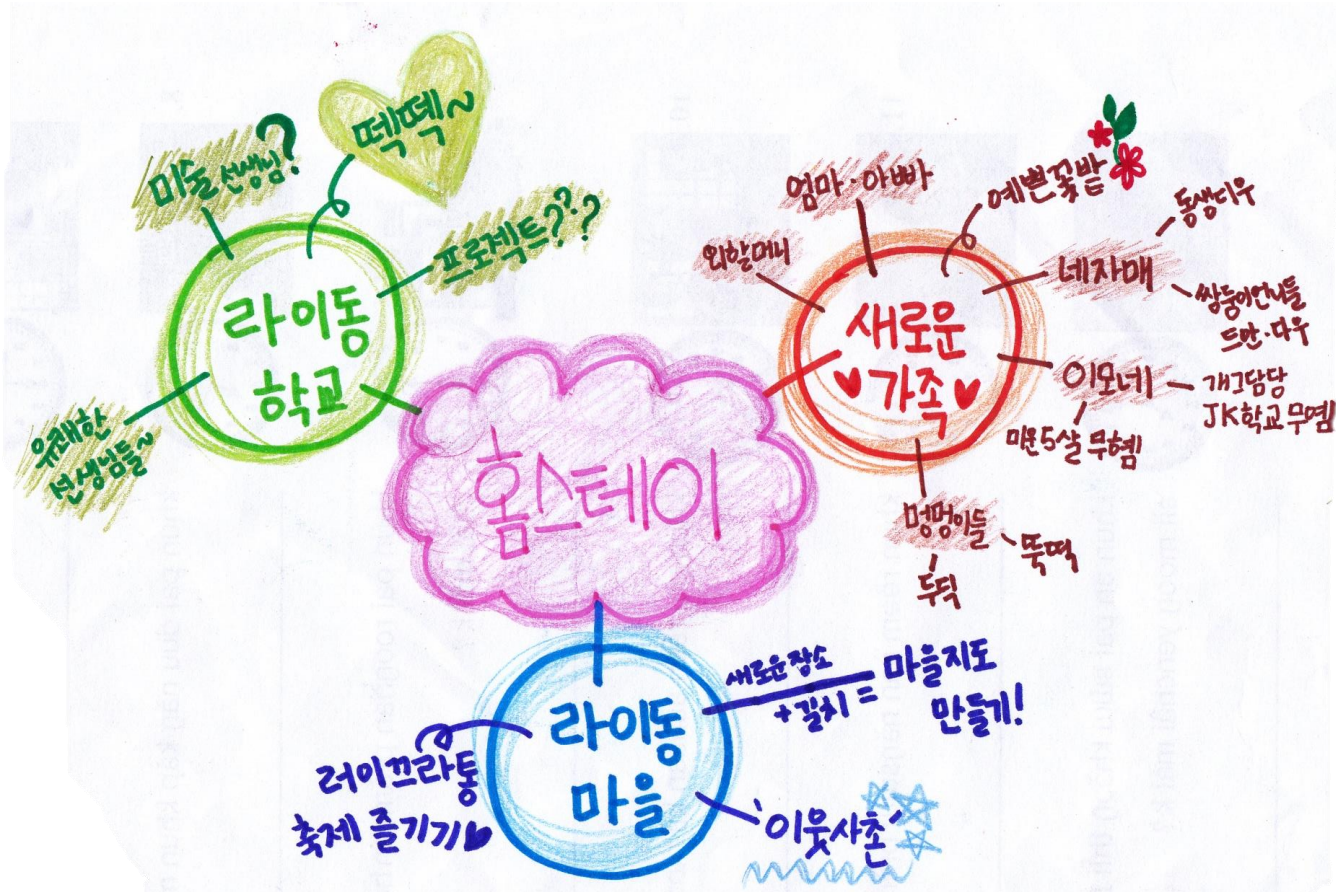 홈스테이
라이동
학교
미술 선생님?
떽떽~
프로젝트???
유쾌한
선생님들~
새로운
가족
외할머니
엄마·아빠
예쁜꽃밭
네자매
동생디우
쌍둥이언니들
드만·다우
이모네
개그담당
JK학교 무옘
미운5살 무혬
멍멍이들
뚝떡
두딕
라이동
마을
새로운장소
+길치 =
마을지도
만들기!
러이끄라통
축제 즐기기
'이웃사촌'